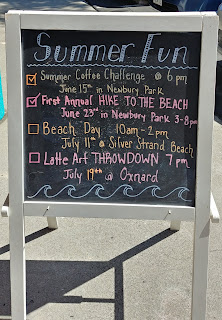 Summer Fun
Summer Coffee Challenge @ 6 pm
June 15th in Newbury Park
First Annual HIKE TO THE BEACH
June 23rd in Newbury Park 3-8pm
Beach Day 10am-2pm
July 11th @ Silver Strand Beach
Latte Art THROWDOWN 7 pm
July 19th @ Oxnard